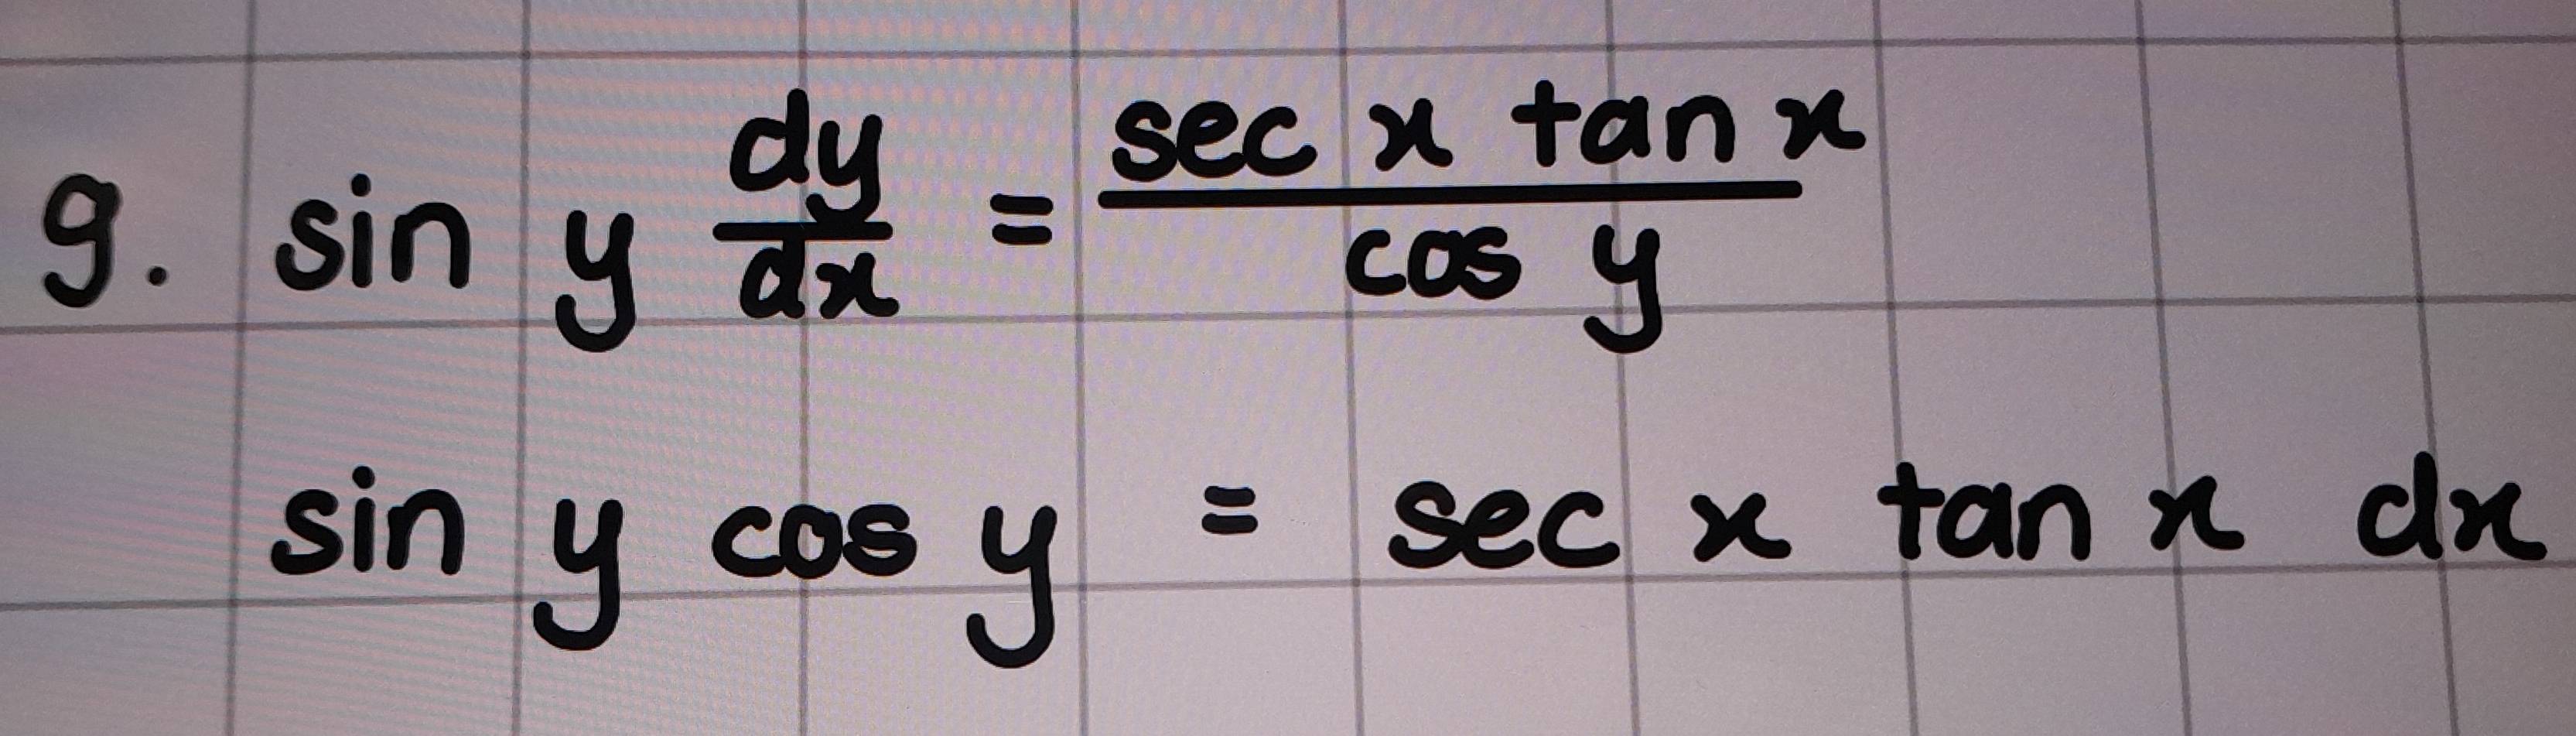 g. sin y dy/dx = sec x tan x / cos y
sin y cos y = sec x tan x dx